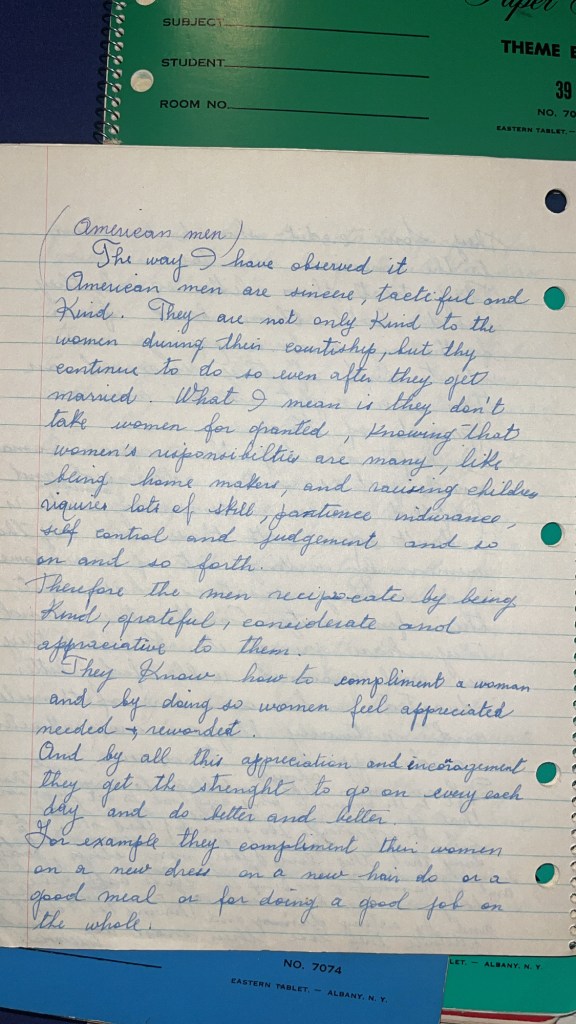 Paper
SUBJECT
STUDENT
ROOM NO.
THEME B
39
NO. 70
EASTERN TABLET. —
(American men)
The way I have observed it
American men are sincere, tactiful and
Kind. They are not only Kind to the
women during their courtiship, but thy
continue to do so even after they get
married. What I mean is they don't
take women for granted, Knowing that
women's responsibilties are many, like
being home makers, and raising children
riquires lots of skill, pantience indurance,
self control and judgement and so
on and so forth.
Therefore the men recipocate by being
Kind, grateful, considerate and
appraciative to them.
They Know how to compliment a woman
and by doing so women feel appreciated
needed + reworded.
And by all this appreciation and incoragement
they get the strenght to go on every each
day and do better and better.
For example they compliment their women
on a new dress on a new hair do or a
good meal or for doing a good job on
the whole.
NO. 7074
EASTERN TABLET. — ALBANY, N. Y.
LET. — ALBANY, N. Y.